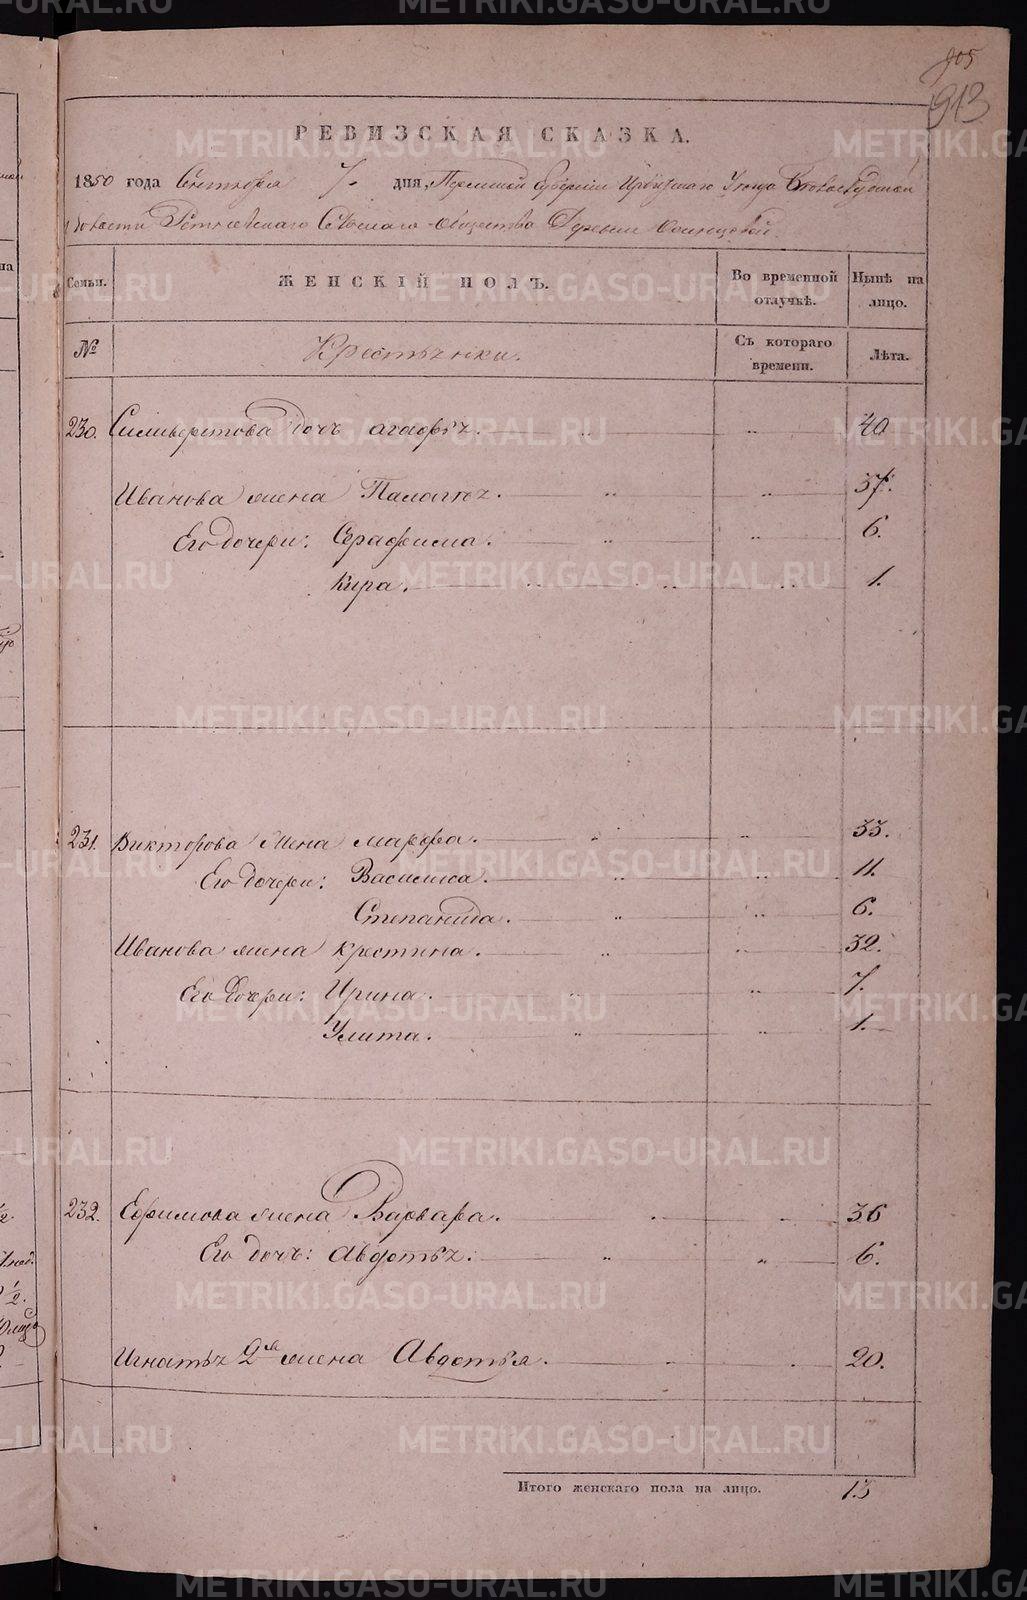 905
913
РЕВИЗСКАЯ СКАЗКА.
1850 года Сентября 7. дня, Пермской Губернии Ирбитскаго Уѣзда
Волости Сельскаго Общества Деревни
Семьи. ЖЕНСКІЙ ПОЛЪ. Во временной отлучкѣ. Нынѣ на лицо.
№ Крестьянки. Съ котораго времени. Лѣта.
230. Сильверстова дочь Агафья. 40
Иванова жена Палагѣя. 37.
Его дочери: Серафима. 6.
Кира. 1.
231. Викторова жена Марфа. 33.
Его дочери: Василиса. 11.
Степанида. 6.
Иванова жена Крестина. 32.
Его дочери: Ирина. 7.
Улита. 1.
232. Ефимова жена Варвара. 36
Его дочь: Авдотья. 6.
Игнатья 2я жена Авдотья. 20.
Итого женскаго пола на лицо. 13
METRIKI.GASO-URAL.RU